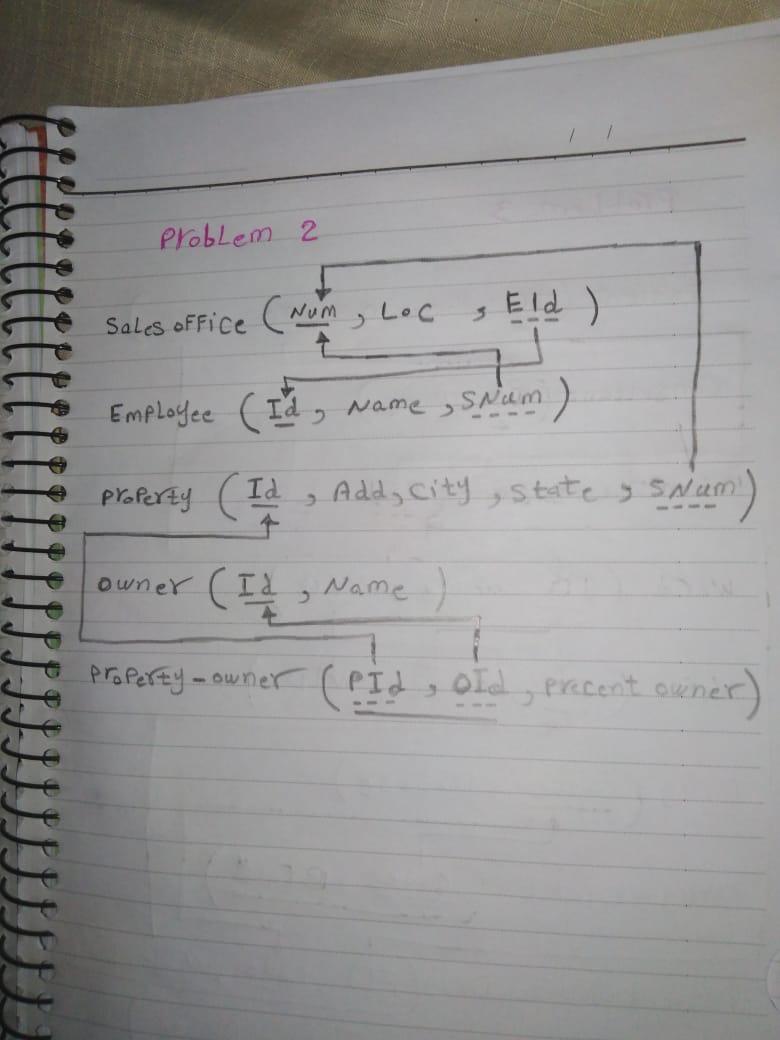 Problem 2
Sales office (Num, Loc, EId)
Employee (Id, Name, SNum)
Property (Id, Add, City, State, SNum)
owner (Id, Name)
Property-owner (PId, OId, precent owner)